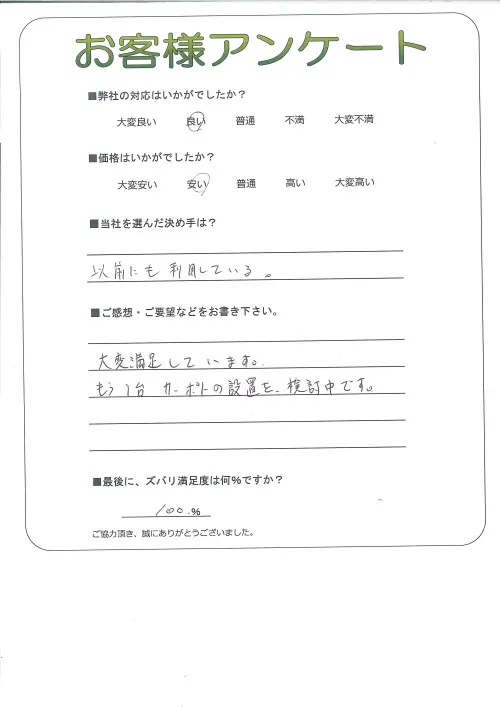 お客様アンケート
■弊社の対応はいかがでしたか？
大変良い 良い 普通 不満 大変不満
■価格はいかがでしたか？
大変安い 安い 普通 高い 大変高い
■当社を選んだ決め手は？
以前にも利用している。
■ご感想・ご要望などをお書き下さい。
大変満足しています。
もう1台カーポートの設置を、検討中です。
■最後に、ズバリ満足度は何%ですか？
100.%
ご協力頂き、誠にありがとうございました。